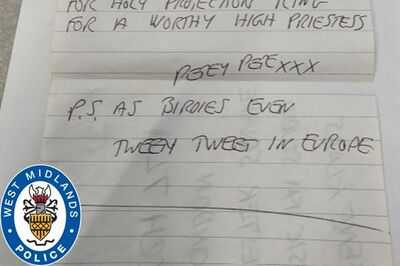 FOR HOLY PROJECTION ICING
FOR A WORTHY HIGH PRIESTESS
PETEY PETEXXX
P.S. AS BIRDIES EVEN
TWEEY TWEET IN EUROPE
WEST MIDLANDS
POLICE